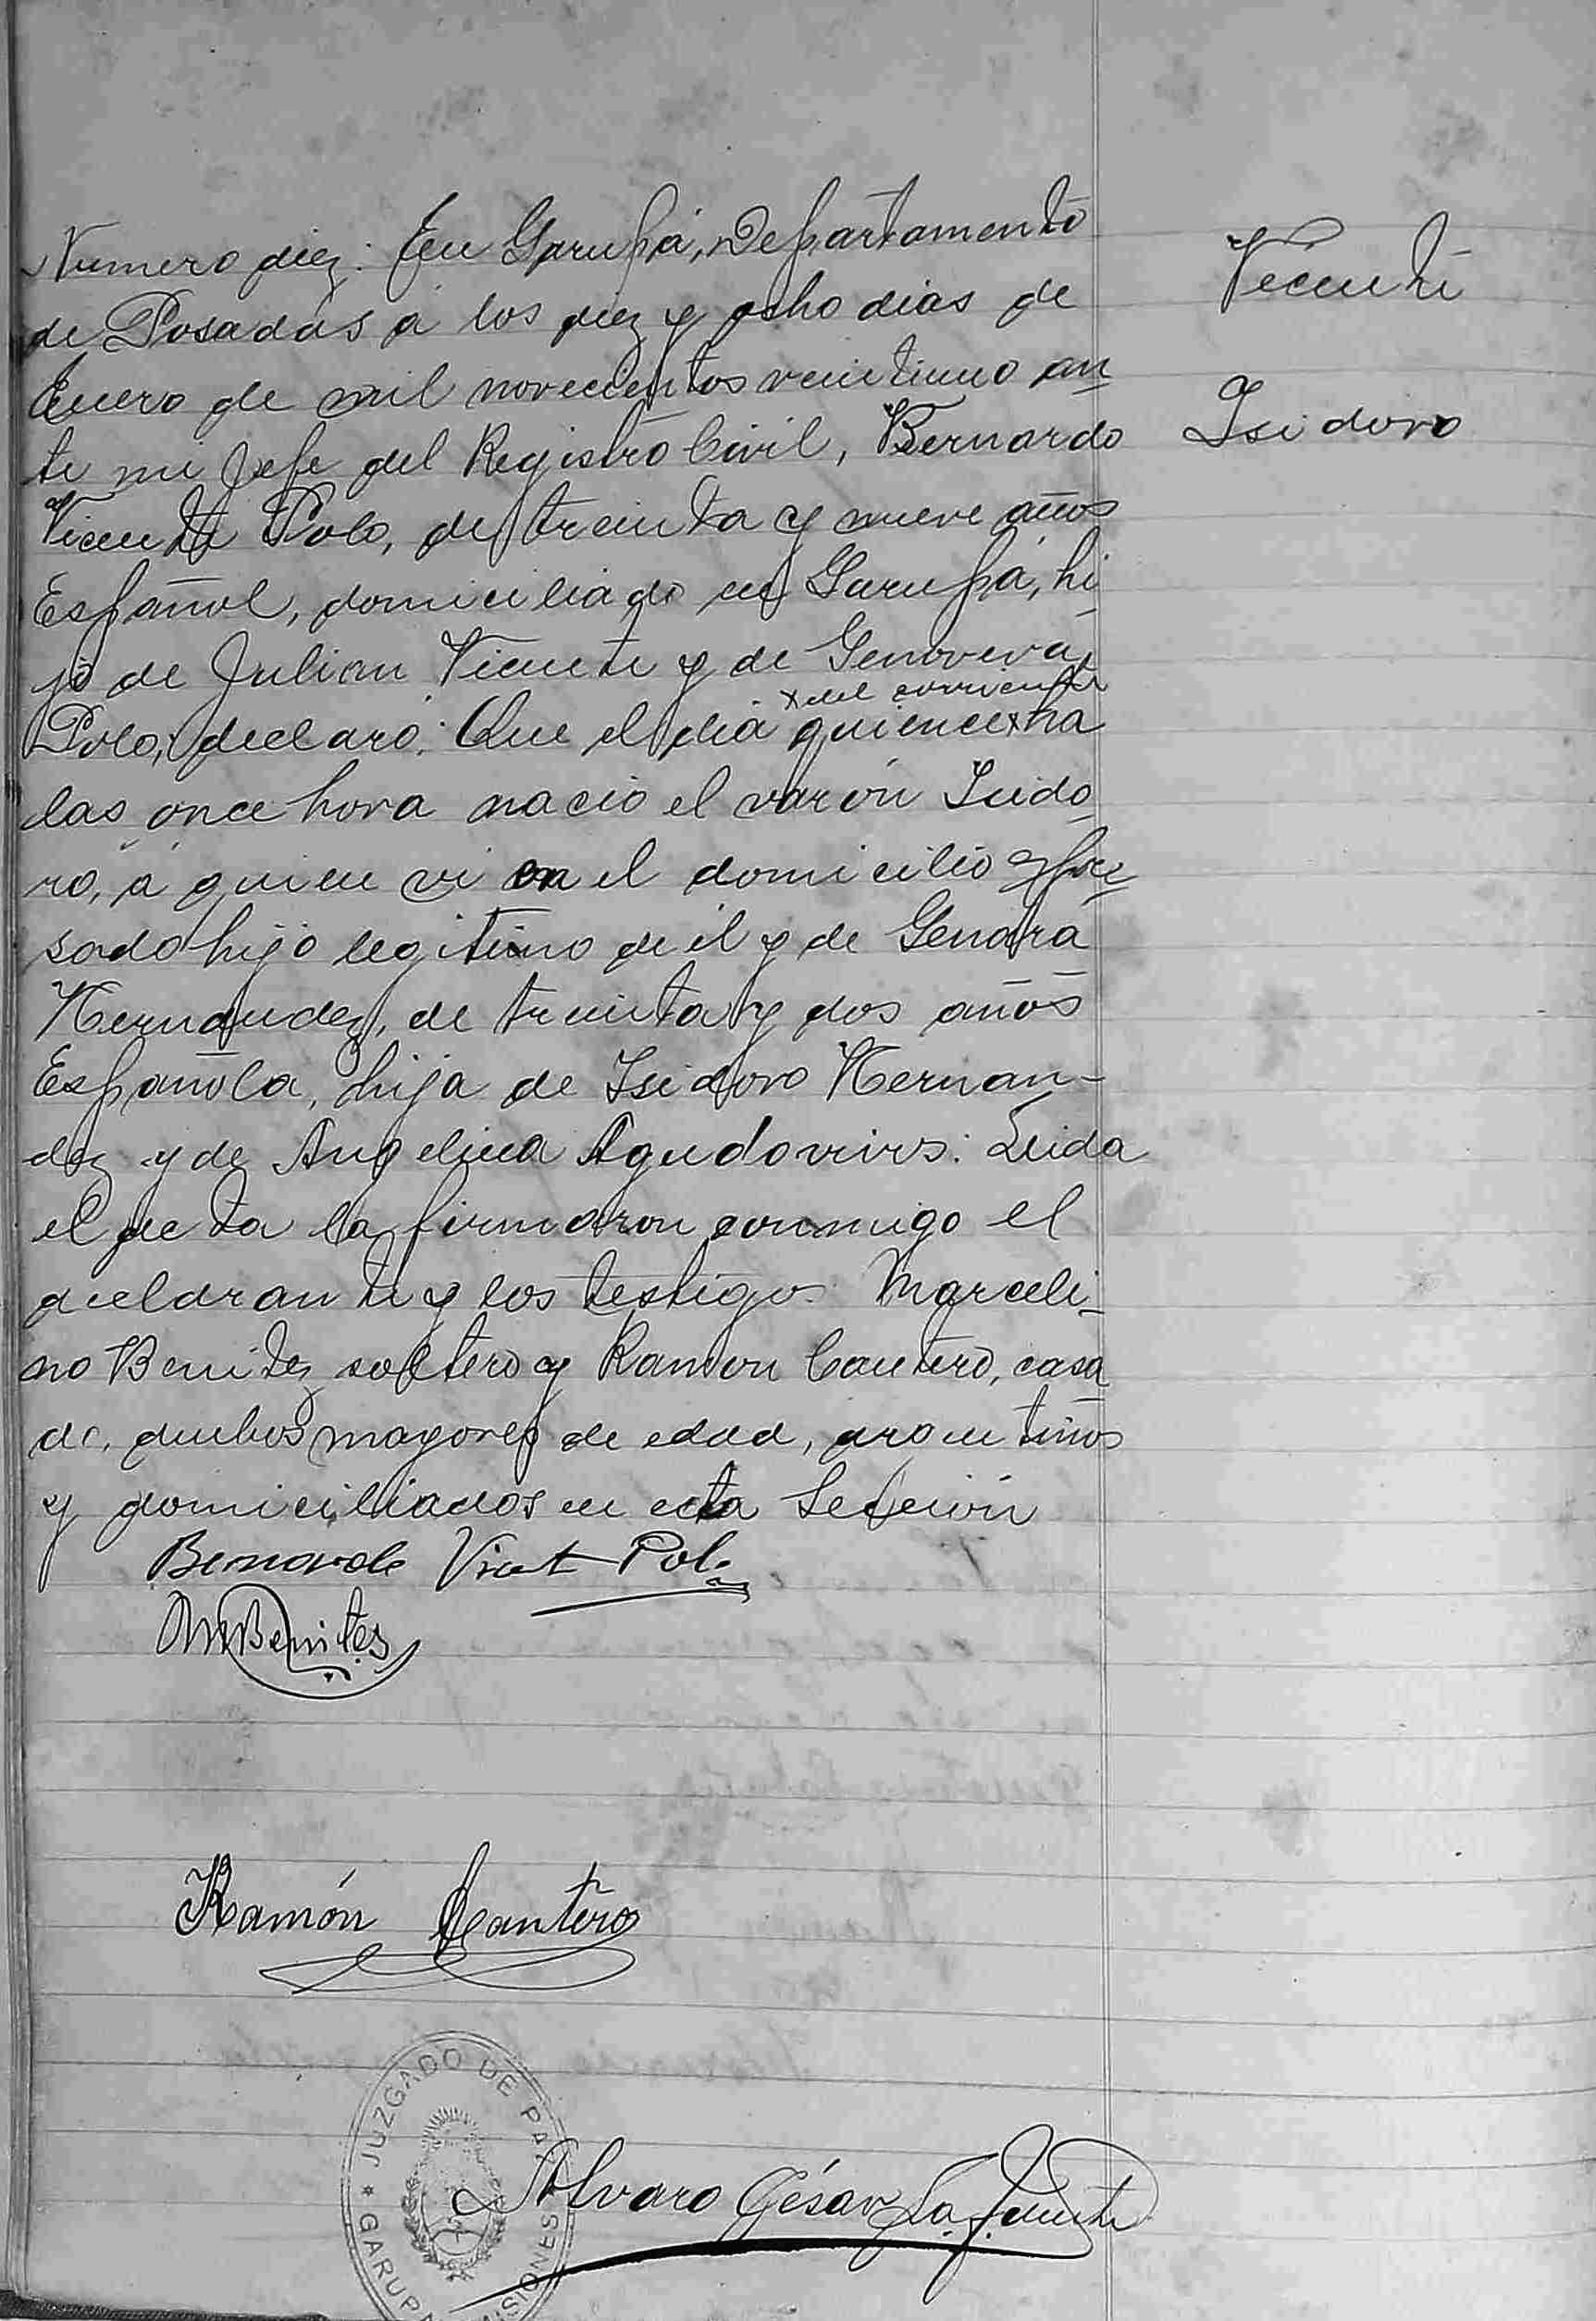 Numero diez: En Garupá, Departamento
de Posadas á los diez y ocho dias de
Enero de mil novecientos veintiuno an
te mi Jefe del Registro Civil, Bernardo
Vicente Polo, de treinta y nueve años
Español, domiciliado en Garupá, hi
jo de Julian Vicente y de Genoveva
x del corriente
Polo, declaró: Que el dia quience x ha
las once hora nació el varón Isido
ro, á quien vi en el domicilio expre
sado hijo legitimo de él y de Genara
Hernandez, de treinta y dos años
Española, hija de Isidoro Hernan-
dez y de Angelina Agudo vivvs: Leida
el acta la firmaron conmigo el
declarante y los testigos Marceli-
no Benitez soltero y Ramon Cantero, casa
do, ambos mayores de edad, argentinos
y domiciliados en esta Sección
Vicente
Isidoro
Bernardo Vicente Polo
M Benites
Ramón Cantero
JUZGADO DE PAZ * GARUPA MISIONES *
Alvaro César La Fuente